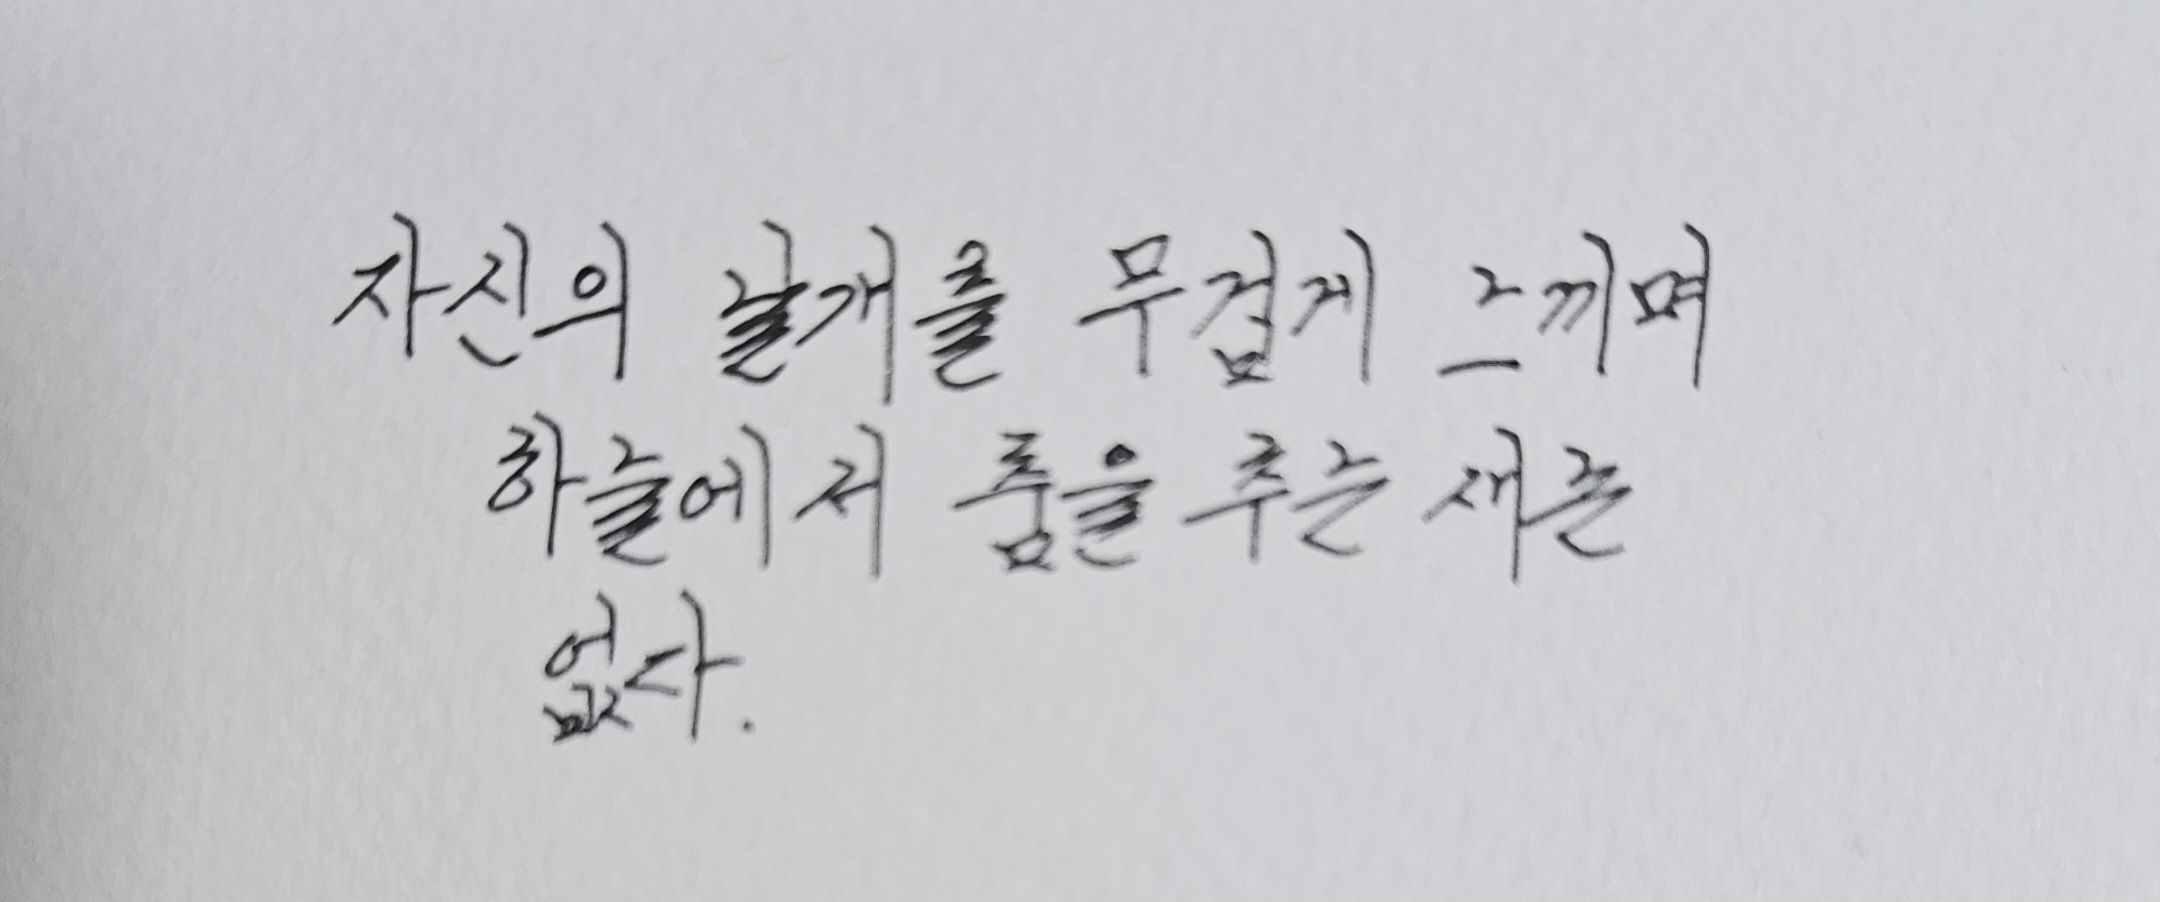 자신의 날개를 무겁게 느끼며
하늘에서 춤을 추는 새는
없다.